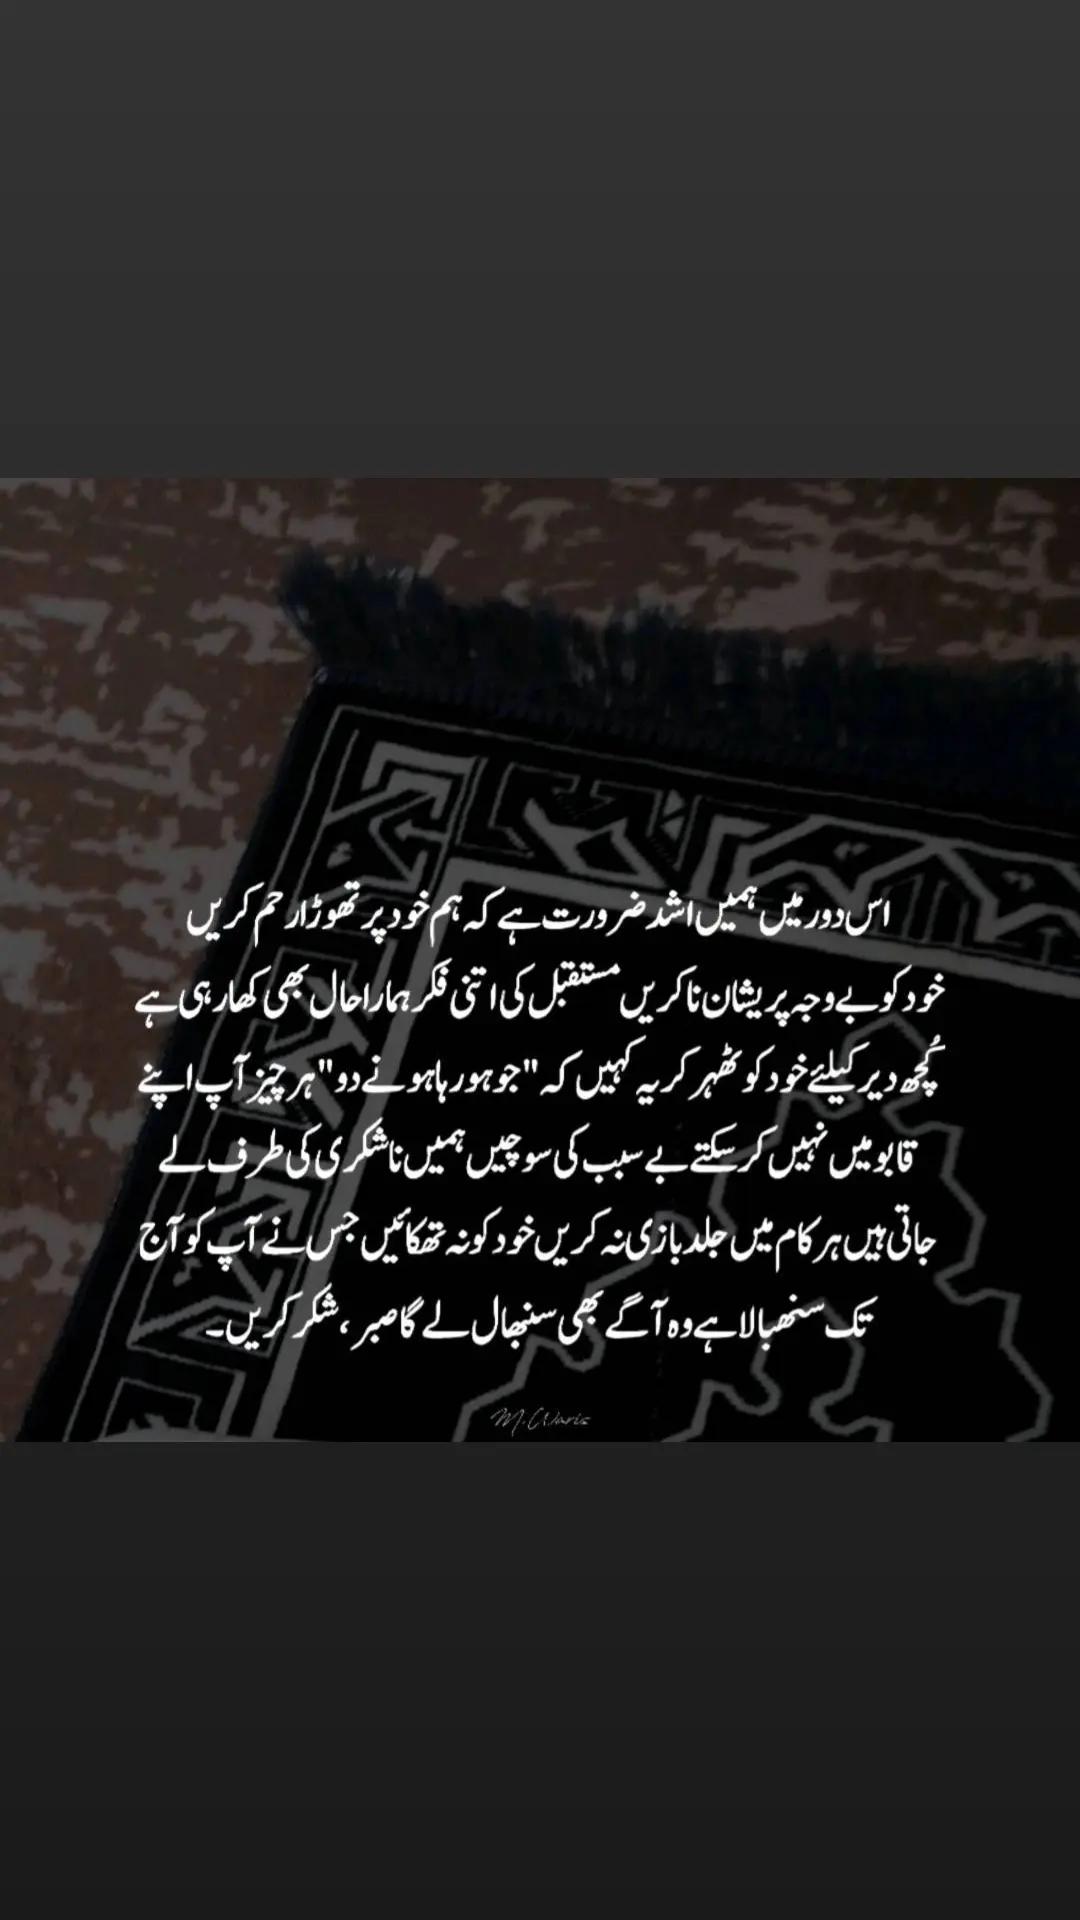 اس دور میں ہمیں اشد ضرورت ہے کہ ہم خود پر تھوڑا رحم کریں
خود کو بے وجہ پریشان نا کریں مستقبل کی اتنی فکر ہمارا حال بھی کھا رہی ہے
کُچھ دیر کیلئے خود کو ٹھہر کر یہ کہیں کہ "جو ہو رہا ہونے دو" ہر چیز آپ اپنے
قابو میں نہیں کر سکتے بے سبب کی سوچیں ہمیں ناشکری کی طرف لے
جاتی ہیں ہر کام میں جلد بازی نہ کریں خود کو نہ تھکائیں جس نے آپ کو آج
تک سنھبالا ہے وہ آگے بھی سنبھال لے گا صبر ، شکر کریں۔
M.Waris